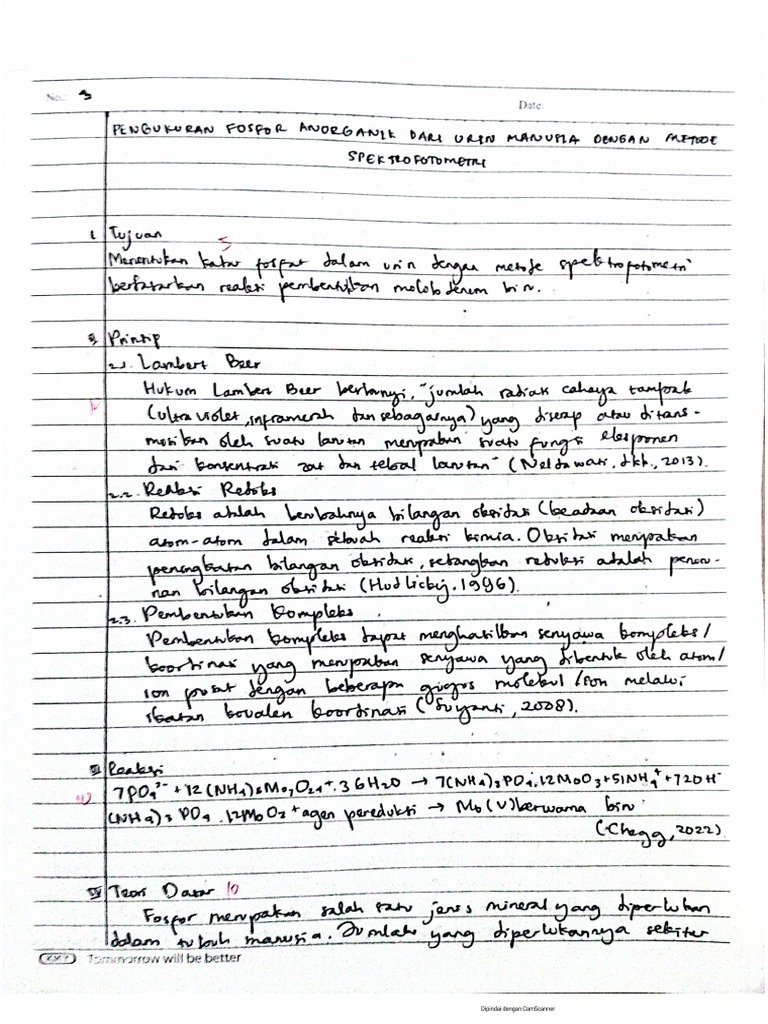 No. 3
Date
PENGUKURAN FOSFOR ANORGANIK DARI URIN MANUSIA DENGAN METODE
SPEKTROFOTOMETRI
I. Tujuan
5
Menentukan kadar fosfat dalam urin dengan metode spektrofotometri
berdasarkan reaksi pembentukan molobdenum biru.
II. Prinsip
2.1. Lambert Beer
Hukum Lambert Beer berbunyi, "jumlah radiasi cahaya tampak
(ultraviolet, inframerah dan sebagainya) yang diserap atau ditrans-
misikan oleh suatu larutan merupakan suatu fungsi eksponen
dari konsentrasi zat dan tebal larutan" (Neldawati, dkk., 2013).
2.2. Reaksi Redoks
Redoks adalah berubahnya bilangan oksidasi (keadaan oksidasi)
atom-atom dalam sebuah reaksi kimia. Oksidasi merupakan
peningkatan bilangan oksidasi, sedangkan reduksi adalah penuru-
nan bilangan oksidasi (Hudlicky, 1996).
2.3. Pembentukan Kompleks
Pembentukan kompleks dapat menghasilkan senyawa kompleks/
koordinasi yang merupakan senyawa yang dibentuk oleh atom/
ion pusat dengan beberapa gugus molekul/ion melalui
ikatan kovalen koordinasi (Suyanti, 2008).
III Reaksi
7PO4³⁻ + 12(NH4)6Mo7O24.36H2O → 7(NH4)3PO4.12MoO3 + 51NH4⁺ + 72OH⁻
(NH4)3PO4.12MoO3 + agen pereduksi → Mo(V) berwarna biru
(Chegg, 2022)
IV Teori Dasar 10
Fosfor merupakan salah satu jenis mineral yang diperlukan
dalam tubuh manusia. Jumlah yang diperlukannya sekitar
Tommorrow will be better
Dipindai dengan CamScanner